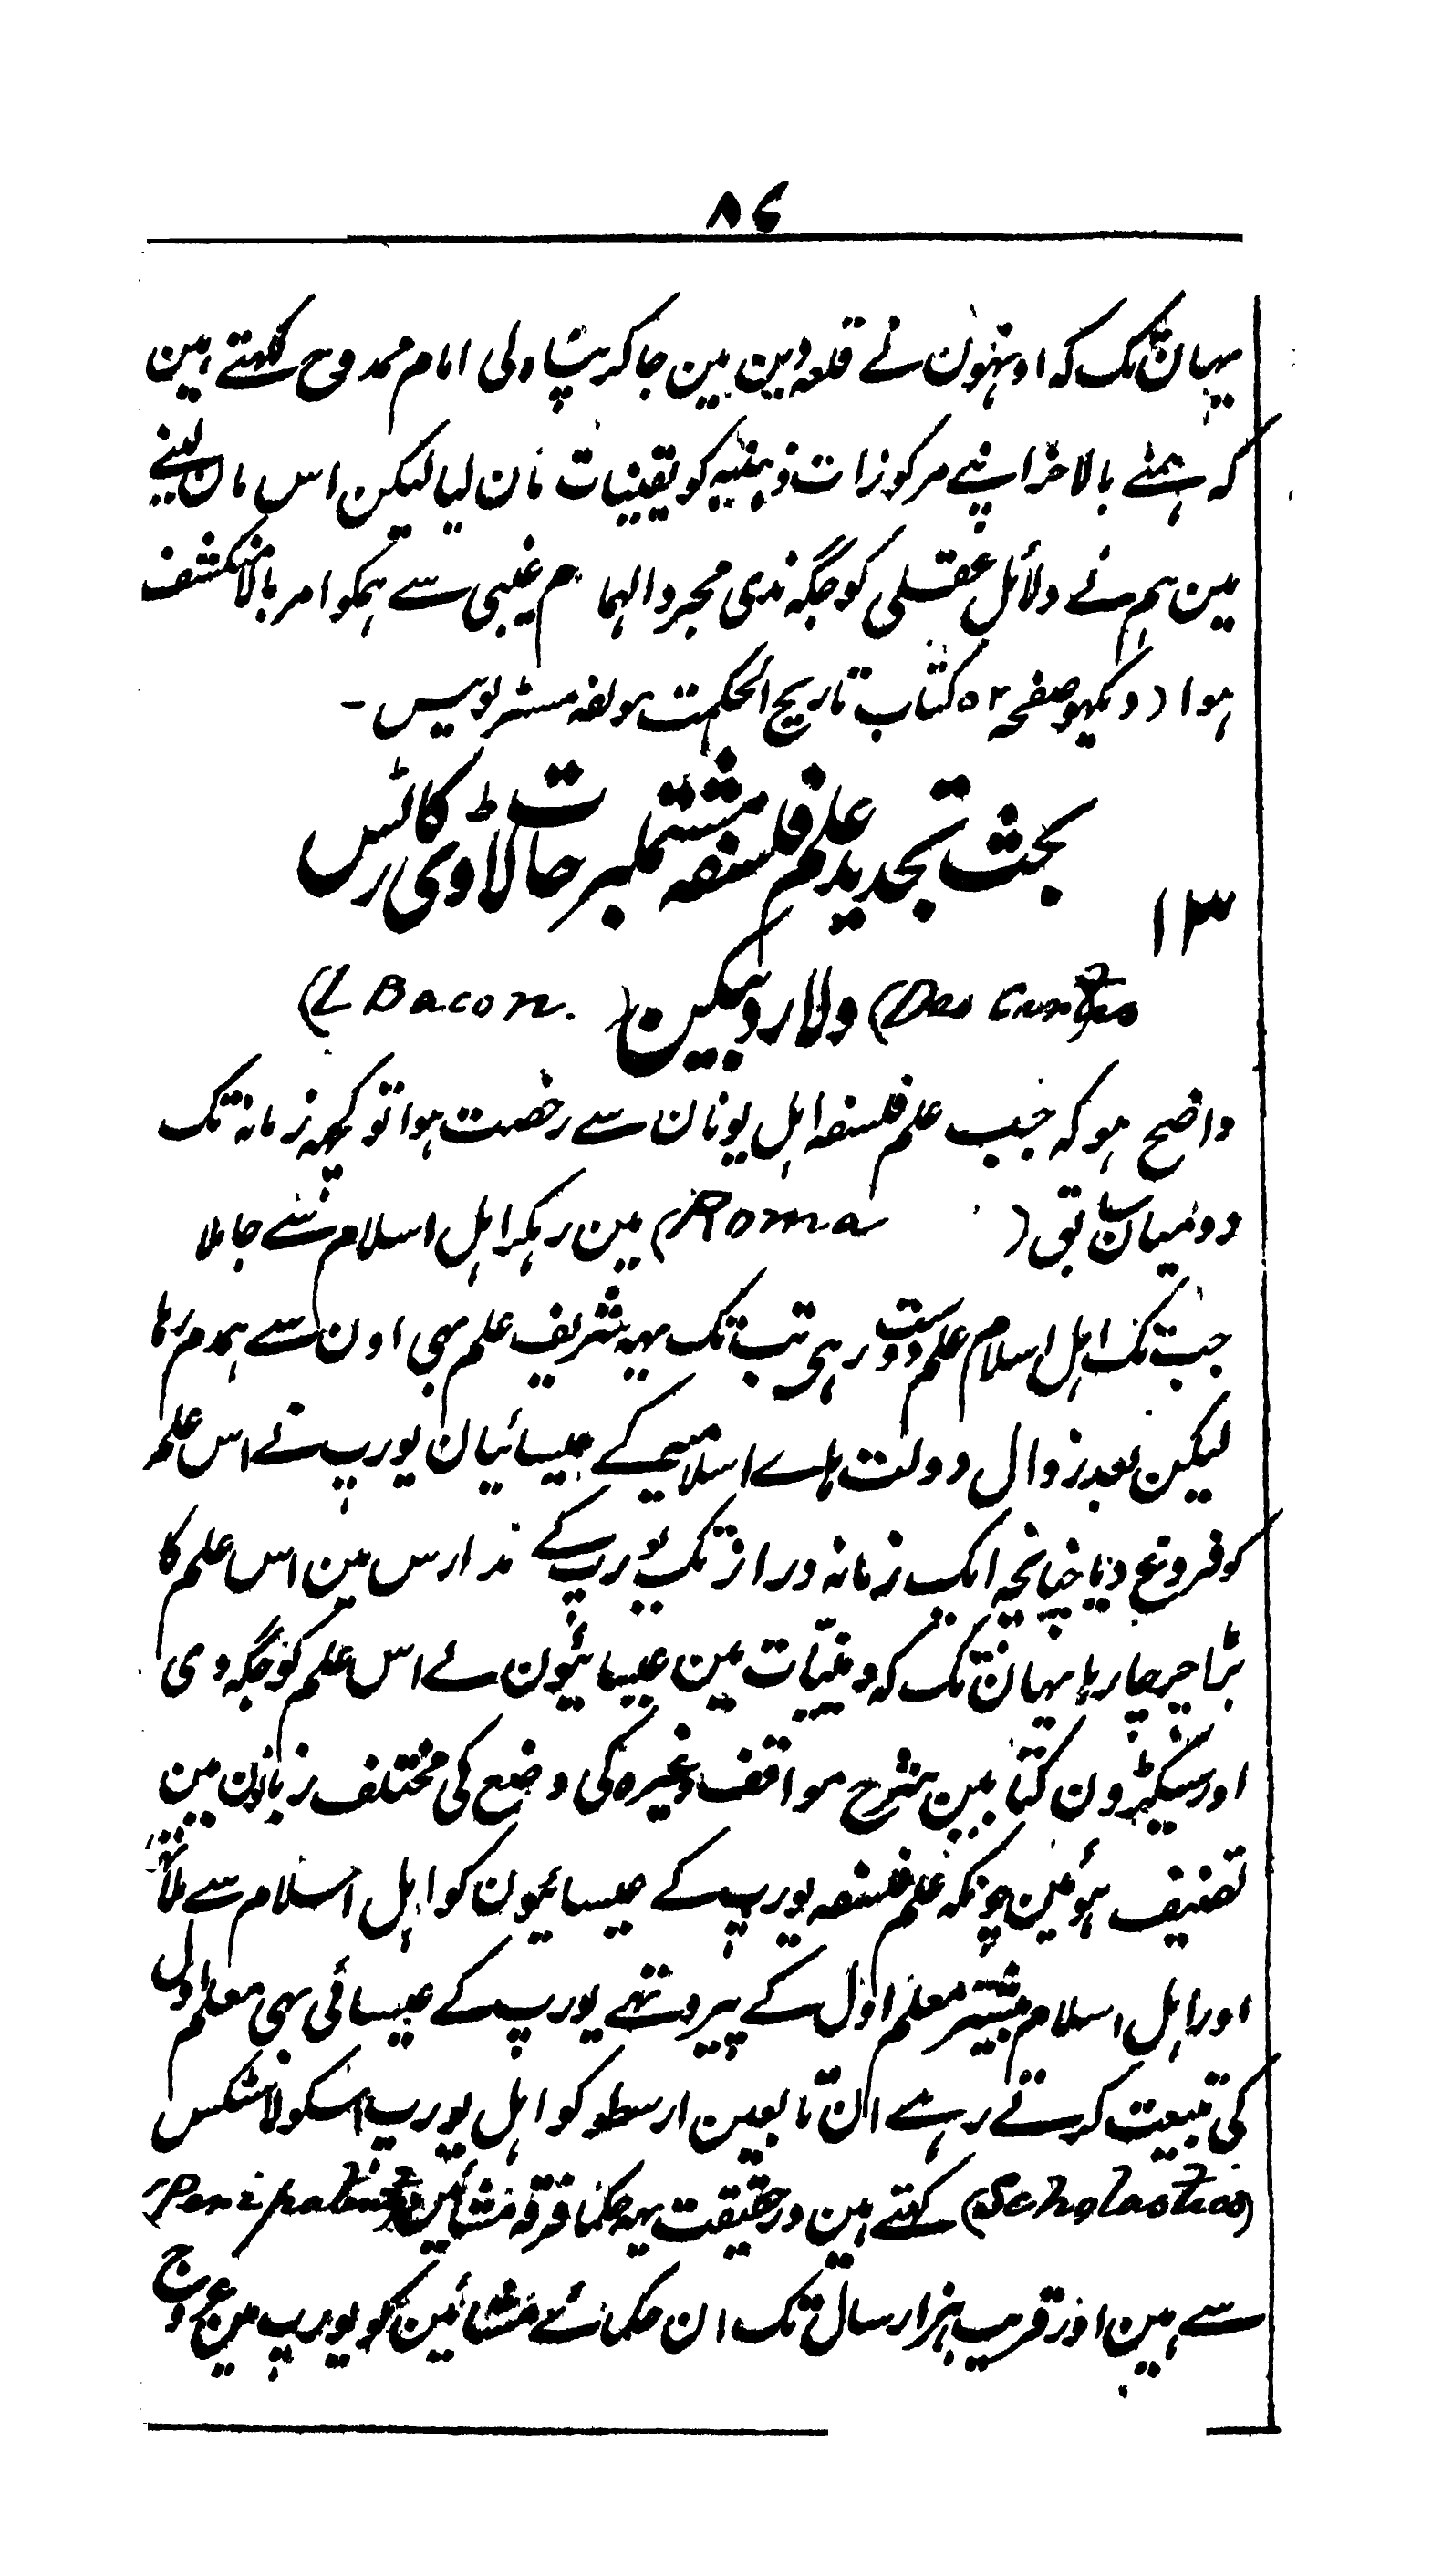 ۸۷
یہان تک کہ اونہون نے قلعہ دین مین جا کر پناہ لی امام ممدوح کہتے ہین
کہ ہمنے بالاخر اپنے مرکوزات ذہنیہ کو یقینیات مان لیا لیکن اس مان لینے
مین ہم نے دلائل عقلی کو جگہ ندی مجرد الہام غیبی سے ہمکو امر بالا منکشف
ہوا (دیکہو صفحہ ۵۲ کتاب تاریخ الحکمت مولفہ مسٹر لویس -
بحث تجدید علم فلسفہ مشتملبر حالات ڈی کارٹس
۱۳
(Des Cartes) ولارڈ بیکن (L Bacon.)
واضح ہو کہ جب علم فلسفہ اہل یونان سے رخصت ہوا تو کچہہ زمانہ تک
رومیان سابق (Roma) مین رہکر اہل اسلام سے جا ملا
جب تک اہل اسلام علم دوست رہی تب تک یہہ شریف علم بہی اون سے ہمدم رہا
لیکن بعد زوال دولت ہاے اسلامیہ کے عیسائیان یورپ نے اس علم
کو فروغ دیا چنانچہ ایک زمانہ دراز تک یورپ کے مدارس مین اس علم کا
بڑا چرچا رہا یہان تک کہ دینیّات مین عیسائیون نے اس علم کو جگہ دی
اور سیکڑون کتابین شرح مواقف وغیرہ کی وضع کی مختلف زبانون مین
تصنیف ہوئین چونکہ علم فلسفہ یورپ کے عیسائیون کو اہل اسلام سے ملا تہا
اور اہل اسلام بیشتر معلم اوّل کے پیرو تہے یورپ کے عیسائی بہی معلم اول
کی تبعیت کرتے رہے ان تابعین ارسطو کو اہل یورپ اسکولاسٹکس
(Scholastics) کہتے ہین درحقیقت یہہ حکما فرقہ مشائین (Peripatetics)
سے ہین اور قریب ہزار سال تک ان حکمائے مشائین کو یورپ مین عروج